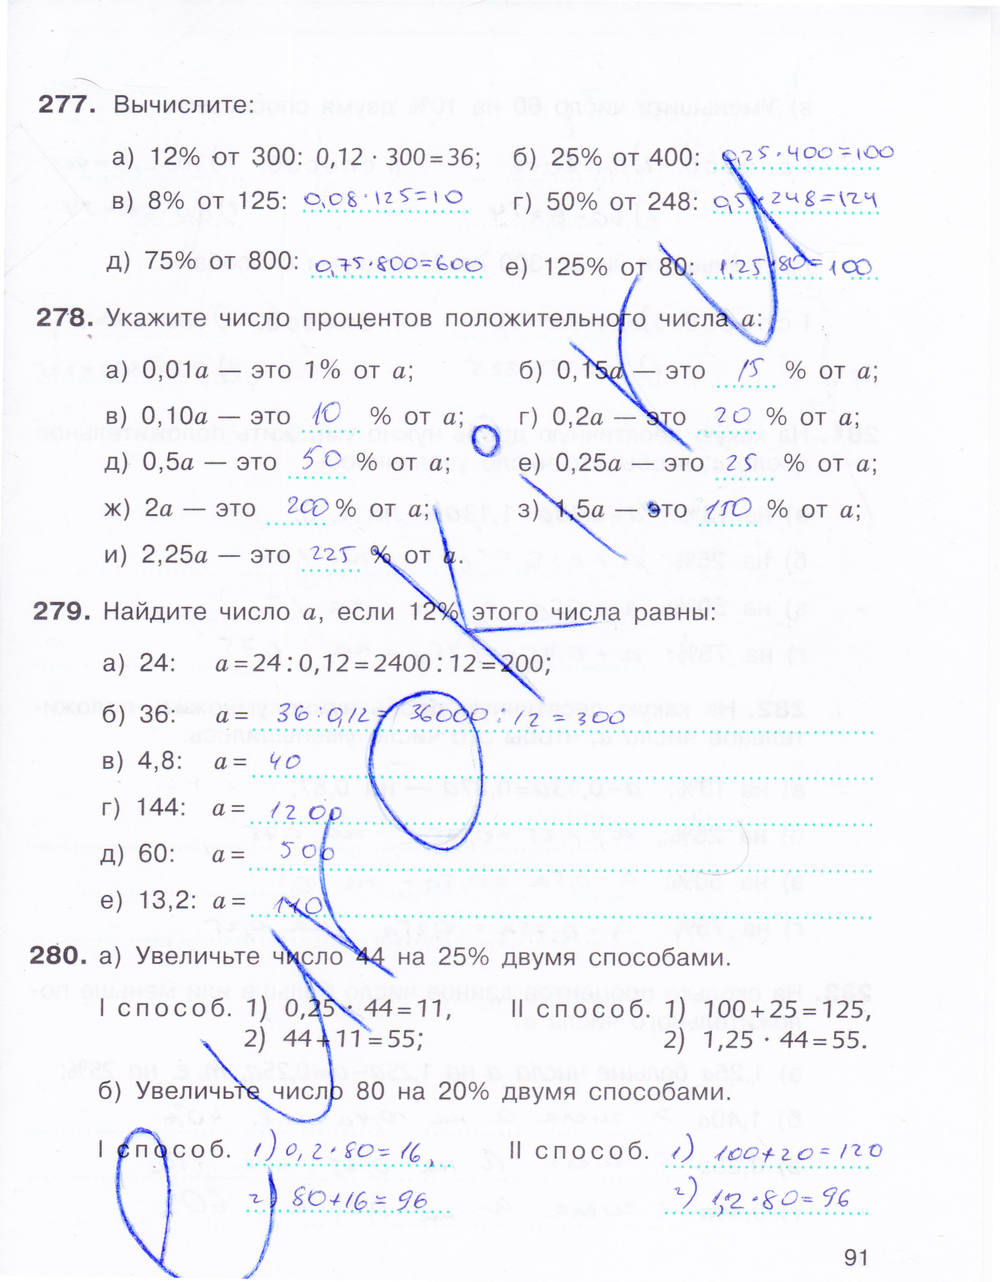 277. Вычислите:
а) 12% от 300: 0,12 · 300 = 36; б) 25% от 400: 0,25 · 400 = 100
в) 8% от 125: 0,08 · 125 = 10 г) 50% от 248: 0,5 · 248 = 124
д) 75% от 800: 0,75 · 800 = 600 е) 125% от 80: 1,25 · 80 = 100
278. Укажите число процентов положительного числа a:
а) 0,01a — это 1% от a; б) 0,15a — это 15 % от a;
в) 0,10a — это 10 % от a; г) 0,2a — это 20 % от a;
д) 0,5a — это 50 % от a; е) 0,25a — это 25 % от a;
ж) 2a — это 200 % от a; з) 1,5a — это 150 % от a;
и) 2,25a — это 225 % от a.
279. Найдите число a, если 12% этого числа равны:
а) 24: a = 24 : 0,12 = 2400 : 12 = 200;
б) 36: a = 36 : 0,12 = 36000 : 12 = 300
в) 4,8: a = 40
г) 144: a = 1200
д) 60: a = 500
е) 13,2: a = 110
280. а) Увеличьте число 44 на 25% двумя способами.
I способ. 1) 0,25 · 44 = 11, II способ. 1) 100 + 25 = 125,
2) 44 + 11 = 55; 2) 1,25 · 44 = 55.
б) Увеличьте число 80 на 20% двумя способами.
I способ. 1) 0,2 · 80 = 16, II способ. 1) 100 + 20 = 120
2) 80 + 16 = 96 2) 1,2 · 80 = 96
91